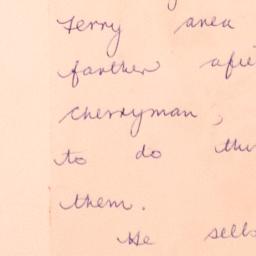 Ferry area
farther
cherryman,
to do
them.
He sells